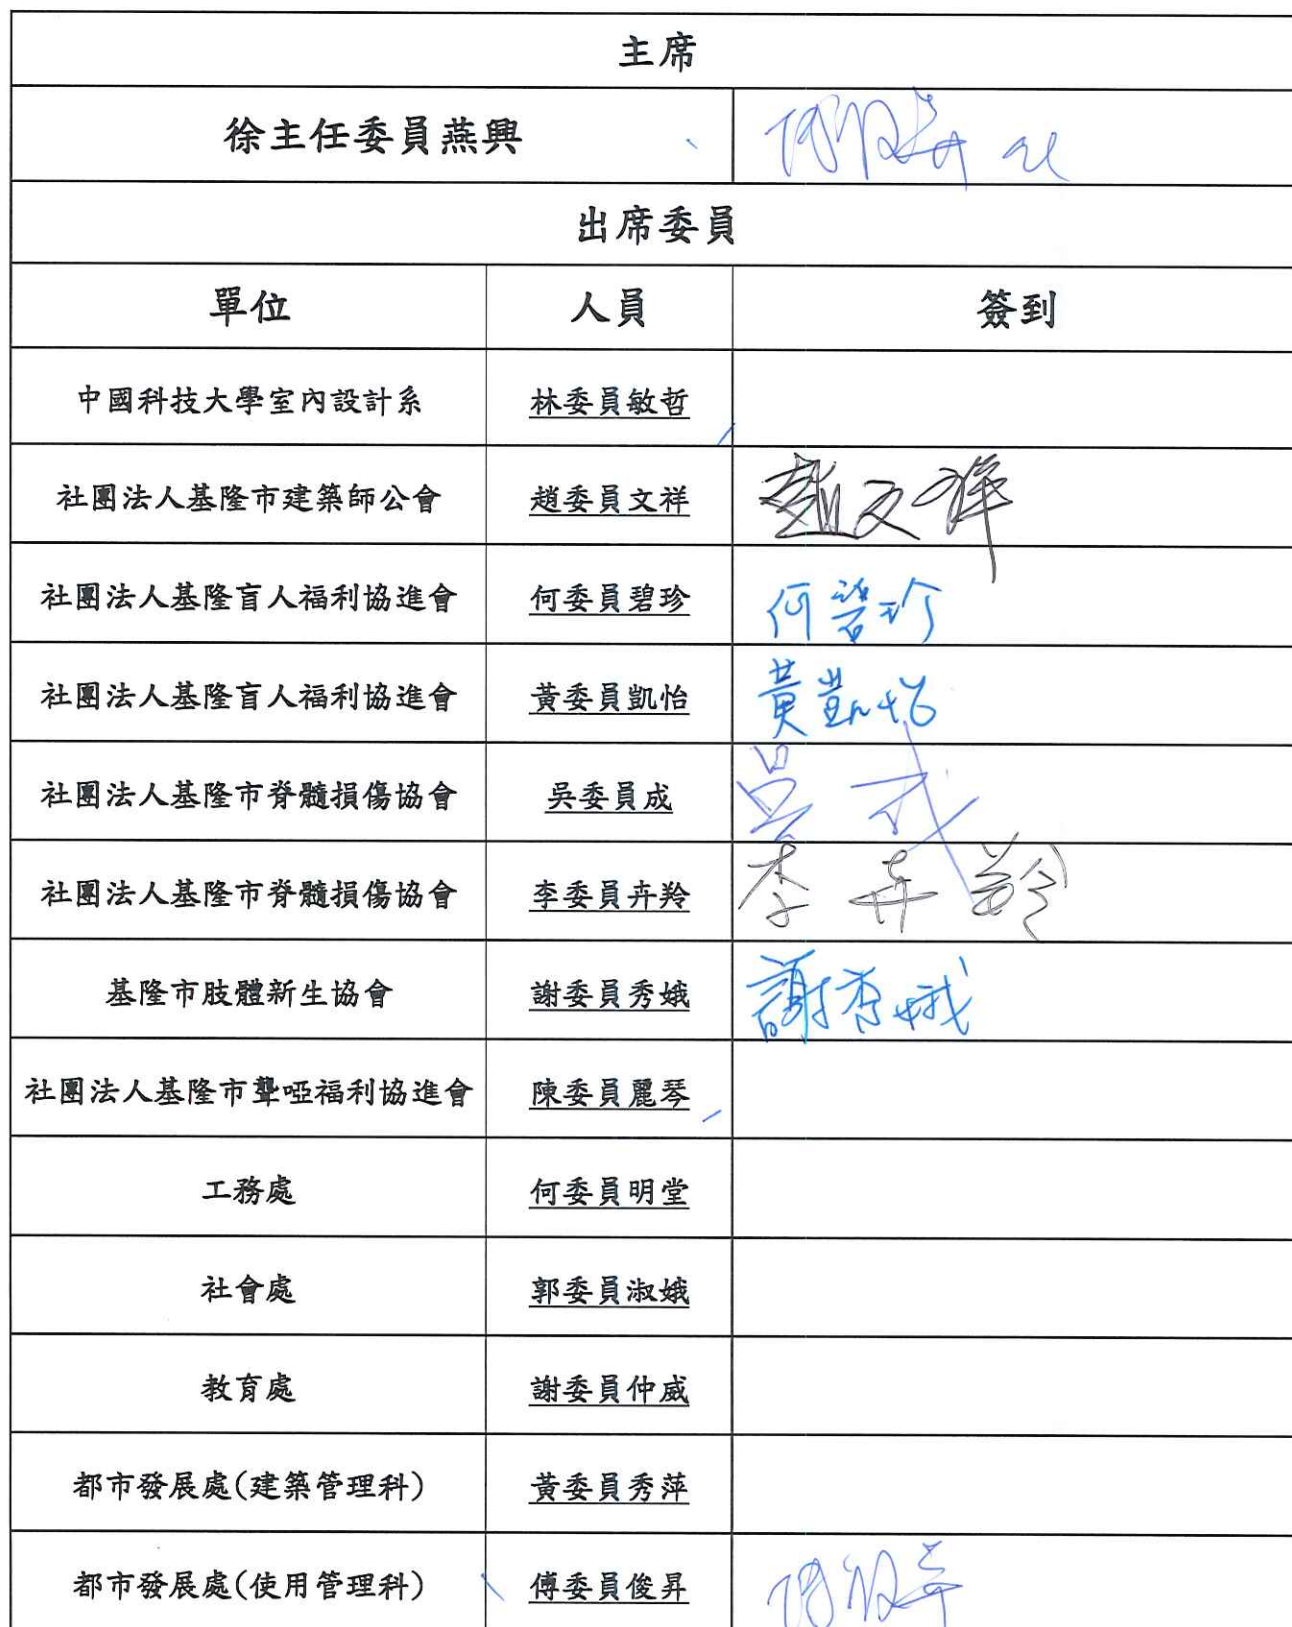 主席
徐主任委員燕興 傅俊昇 代
出席委員
單位 人員 簽到
中國科技大學室內設計系 林委員敏哲
社團法人基隆市建築師公會 趙委員文祥 趙文祥
社團法人基隆盲人福利協進會 何委員碧珍 何碧珍
社團法人基隆盲人福利協進會 黃委員凱怡 黃凱怡
社團法人基隆市脊髓損傷協會 吳委員成 吳成
社團法人基隆市脊髓損傷協會 李委員卉羚 李卉羚
基隆市肢體新生協會 謝委員秀娥 謝秀娥
社團法人基隆市聾啞福利協進會 陳委員麗琴
工務處 何委員明堂
社會處 郭委員淑娥
教育處 謝委員仲威
都市發展處(建築管理科) 黃委員秀萍
都市發展處(使用管理科) 傅委員俊昇 傅俊昇